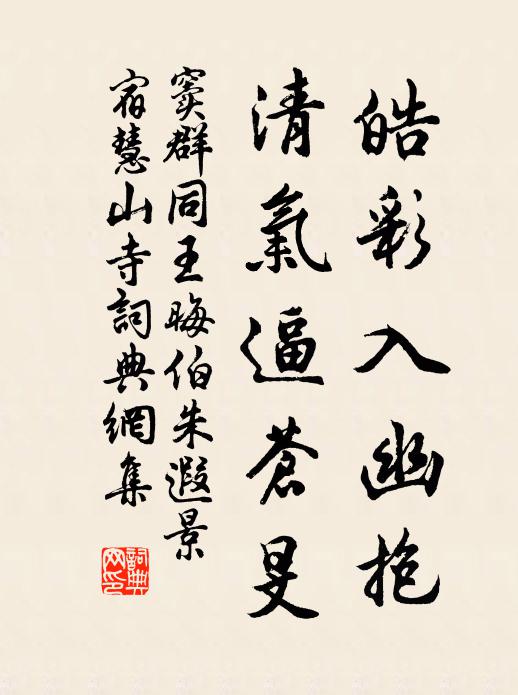 皓彩入幽抱
清氣逼蒼旻
竇群同王晦伯朱遐景
宿慧山寺詞典網集
詞典網印